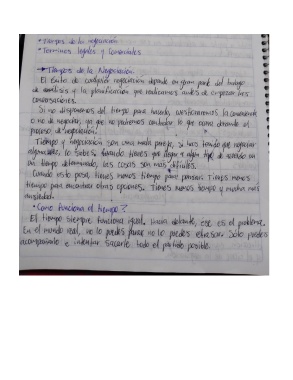 • Tiempos de la negociación
• Términos legales y Comerciales
→ Tiempos de la Negociación.
El éxito de cualquier negociación depende en gran parte del trabajo
de análisis y la planificación que realicemos antes de empezar las
conversaciones.
Si no disponemos del tiempo para hacerlo, cuestionaremos la conveniente
o no de negociar, ya que no podremos controlar lo que ocurra durante el
proceso de negociación.
Tiempo y negociación son una mala pareja, si has tenido que negociar
alguna vez, lo sabes. Cuando tienes que llegar a algún tipo de acuerdo en
un tiempo determinado, las cosas son más difíciles.
Cuando esto pasa, tienes menos tiempo para pensar. Tienes menos
tiempo para encontrar otras opciones. Tienes menos tiempo y mucha más
ansiedad.
• Como funciona el tiempo?
El tiempo siempre funciona igual. Hacia delante, ese es el problema.
En el mundo real, no lo puedes parar no lo puedes atrasar. Solo puedes
acompañarlo e intentar sacarle todo el partido posible.